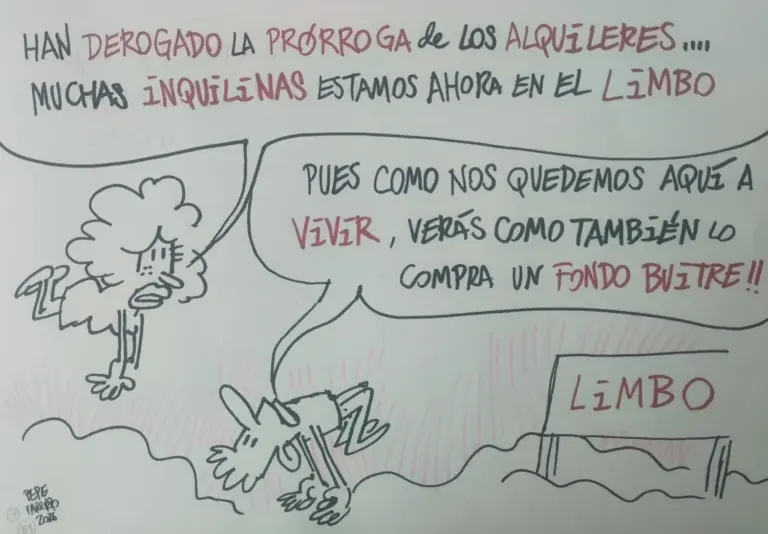 HAN DEROGADO LA PRÓRROGA de LOS ALQUILERES....
MUCHAS INQUILINAS ESTAMOS AHORA EN EL LIMBO
PUES COMO NOS QUEDEMOS AQUÍ A
VIVIR, VERÁS COMO TAMBIÉN LO
COMPRA UN FONDO BUITRE!!
LIMBO
PEPE
FARRUQO
2026